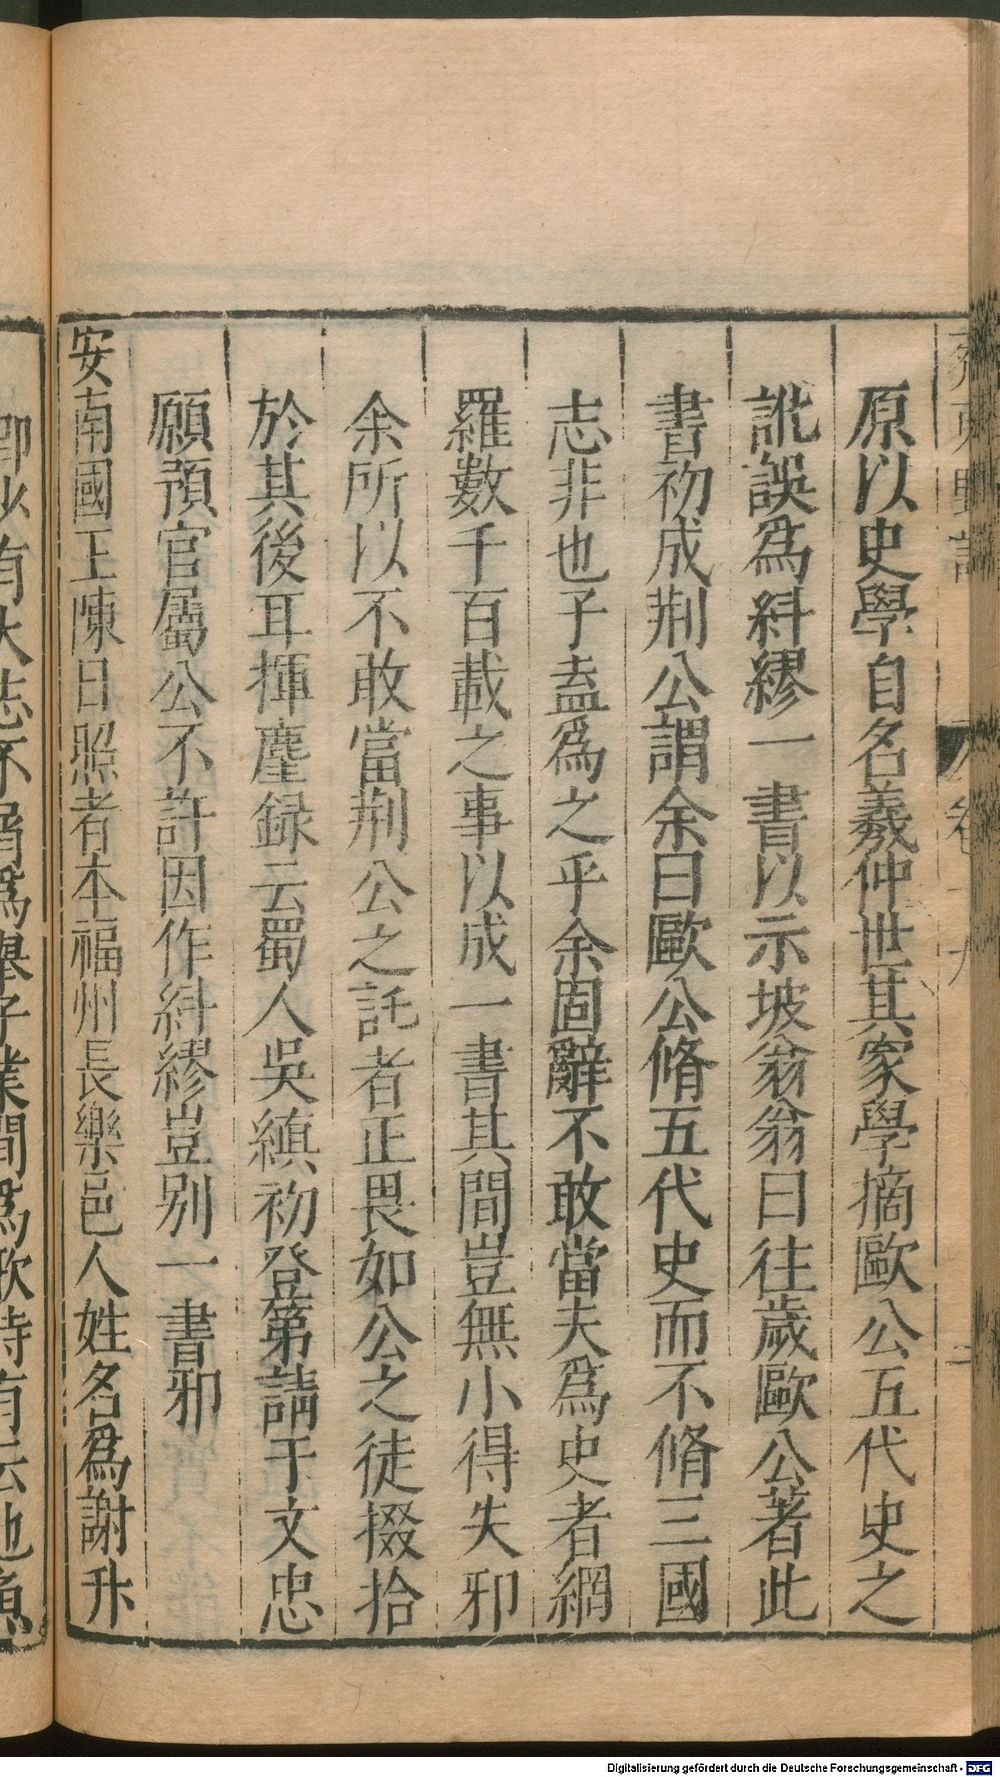 原以史學自名羲仲世其家學摘歐公五代史之
訛誤爲糾繆一書以示坡翁翁曰往歲歐公著此
書初成荆公謂余曰歐公脩五代史而不脩三國
志非也子盍爲之乎余固辭不敢當夫爲史者網
羅數千百載之事以成一書其間豈無小得失邪
余所以不敢當荆公之託者正畏如公之徒掇拾
於其後耳揮麈録云蜀人吳縝初登第請于文忠
願預官屬公不許因作糾繆豈别一書邪
安南國王陳日照者本福州長樂邑人姓名爲謝升
卿少有大志不屑爲舉子業間爲歌詩有云池魚
Digitalisierung gefördert durch die Deutsche Forschungsgemeinschaft - DFG